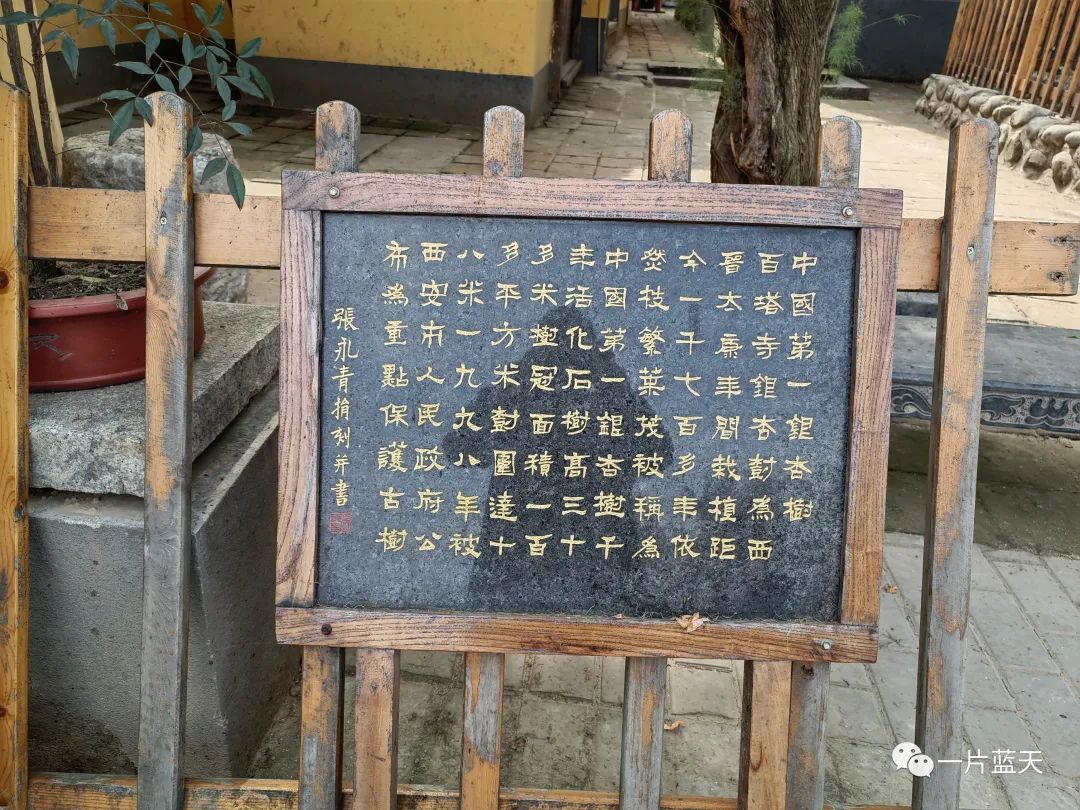 中國第一銀杏樹
百塔寺銀杏樹為西
晉太康年間栽植距
今一千七百多年依
然枝繁葉茂被稱為
中國第一銀杏樹千
年活化石樹高三十
多米樹冠面積一百
多平方米樹圍達十
八米一九九八年被
西安市人民政府公
布為重點保護古樹
張永青捐刻并書
一片蓝天